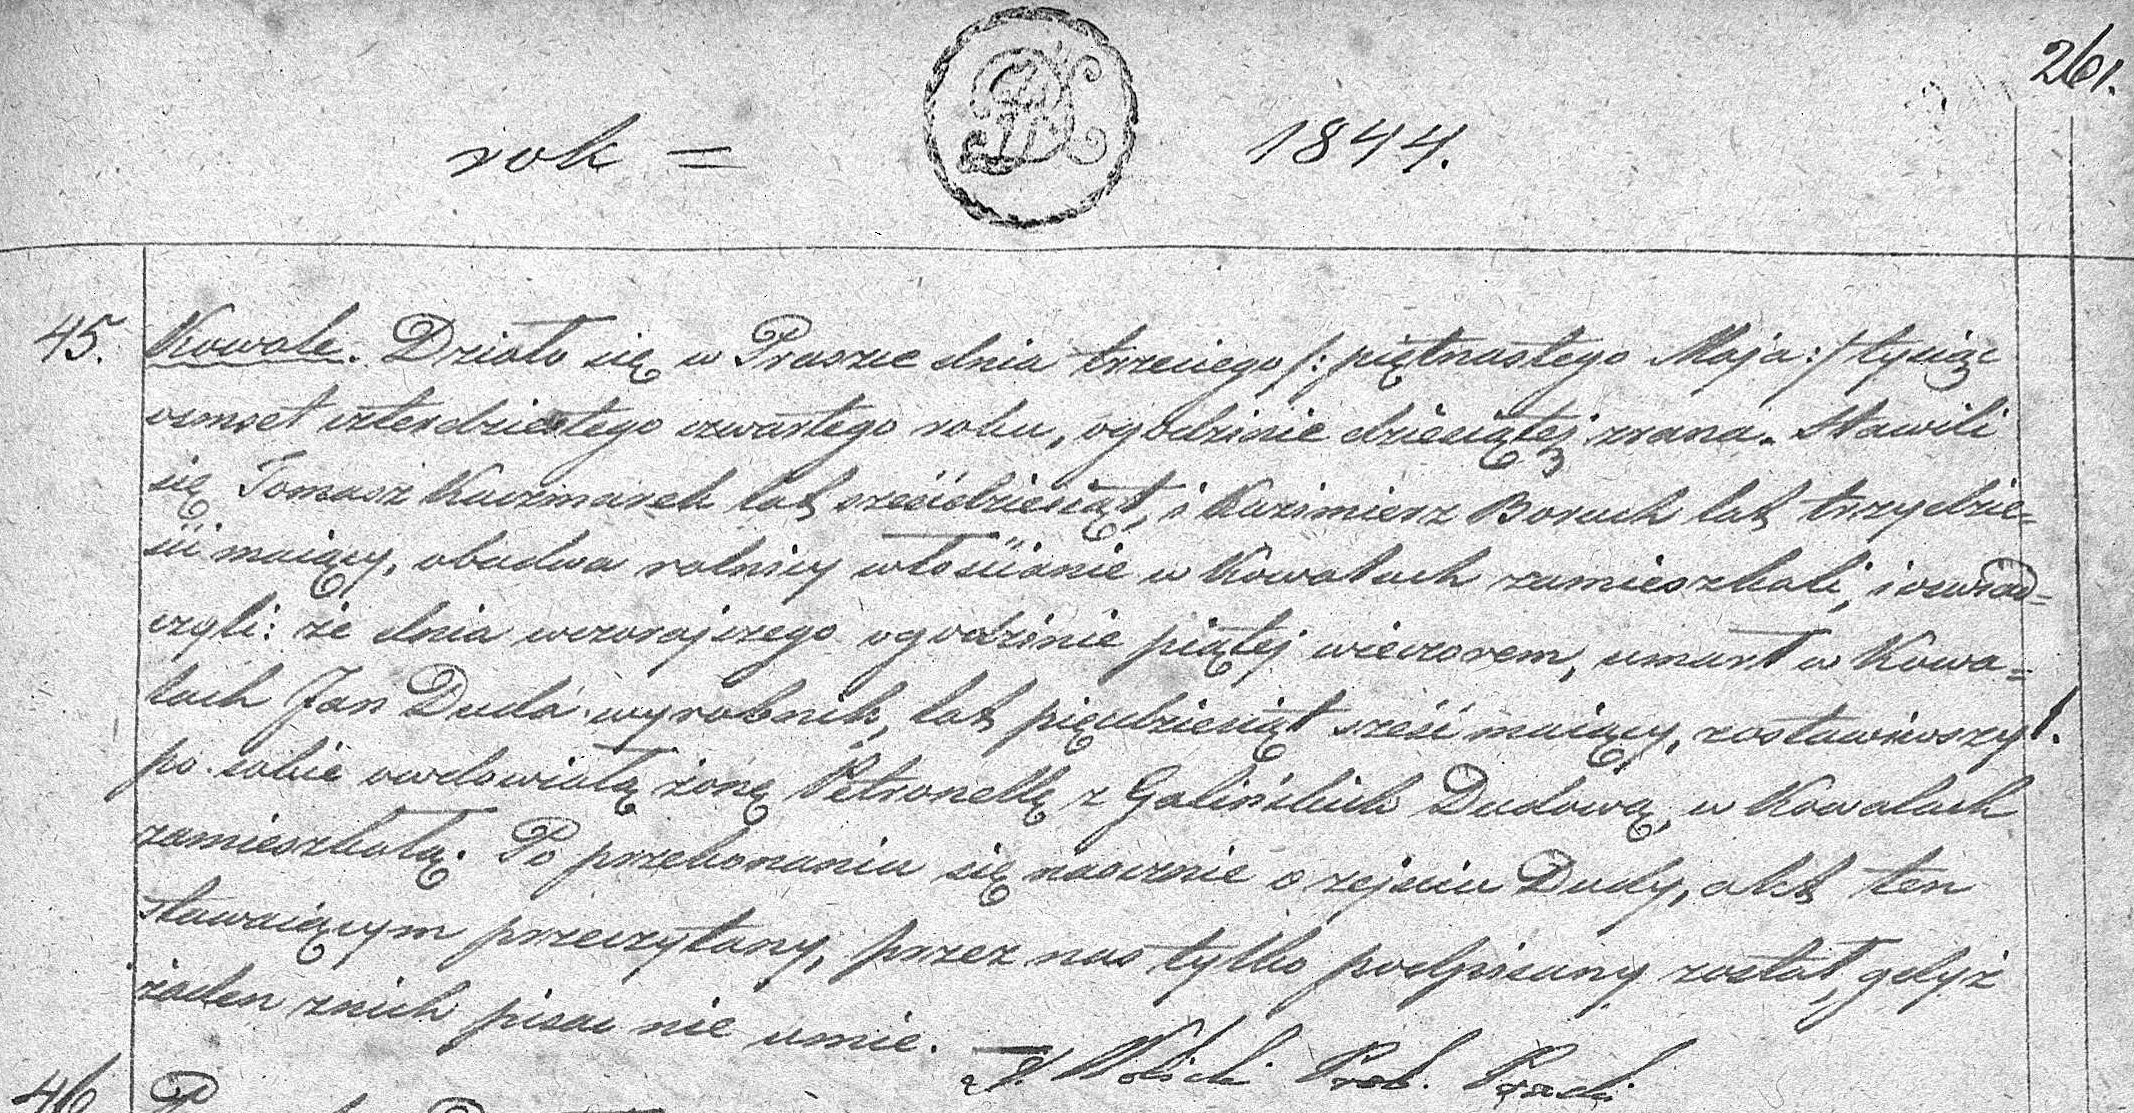 261.
rok = 1844.
45. Kowale. Działo się w Praszce dnia trzeciego /: piętnastego Maja :/ tysiąc
ośmset czterdziestego czwartego roku, o godzinie dziesiątej zrana. Stawili
się Tomasz Kaczmarek lat sześcdziesiąt, i Kazimierz Boruch lat trzydzie=
ści maiący, obadwa rolnicy włościanie w Kowalach zamieszkali, i oswiad=
czyli: że dnia wczorajszego o godzinie piątej wieczorem, umarł w Kowa=
lach Jan Duda wyrobnik, lat pięcdziesiąt sześć maiący, zostawiwszy 1.
po sobie owdowiałą żonę Petronellę z Galińskich Dudową, w Kowalach
zamieszkałą. Po przekonaniu się naocznie o zejsciu Dudy, akt ten
stawaiącym przeczytany, przez nas tylko podpisany został, gdyż
żaden z nich pisac nie umie.
Prob. Praszki
46.